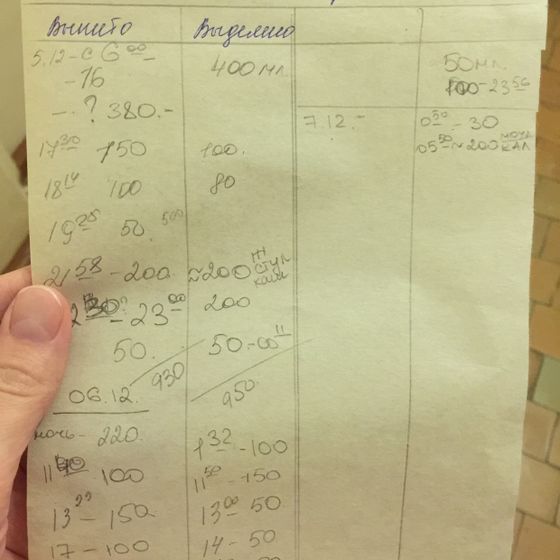 Выпито Выделено
5.12 - с 6 00 -
- 16 400 мл
- ? 380.-
17 30 150 100.
18 14 100 80
19 25 50. 500
21 58 - 200 ≈200 стул
- 23 00 200
50. 50.-00 11
930 950
06.12.
ночь - 220. 1 32 - 100
100 11 50 - 150
13 22 - 150 13 00 50
17 - 100 14 - 50
50 мл.
100 - 23 56
7.12. - 0 50 - 30
05 50 ≈ 200 моча
кал